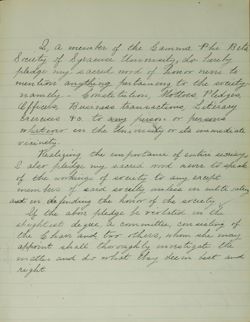 I, a member of the Gamma Phi Beta
Society of Syracuse University, do hereby
pledge my sacred word of honor never to
mention anything pertaining to the society
namely - Constitution, Mottoes, Pledges,
Officers, Business transactions, Literary
exercises &c. to any person or persons
whatever in the University or its immediate
vicinity.
Realizing the importance of entire secrecy,
I also pledge my sacred word never to speak
of the workings of society to any except
members of said society unless in
and in defending the honor of the society.
If the above pledge be violated in the
slightest degree, a committee, consisting of
the Chair and two others, whom she may
appoint shall thoroughly investigate the
matter and do what they deem best and
right.